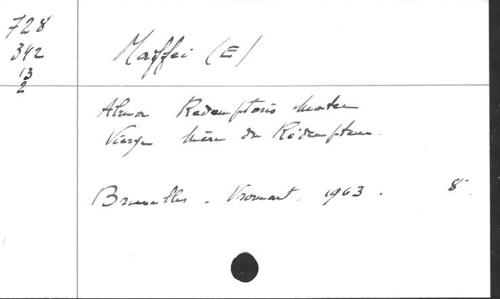 728
342
13
2
Maffei (E)
Alma Redemptoris Mater
Vierge Mère du Rédempteur.
Bruxelles. Vromant. 1963. 8°